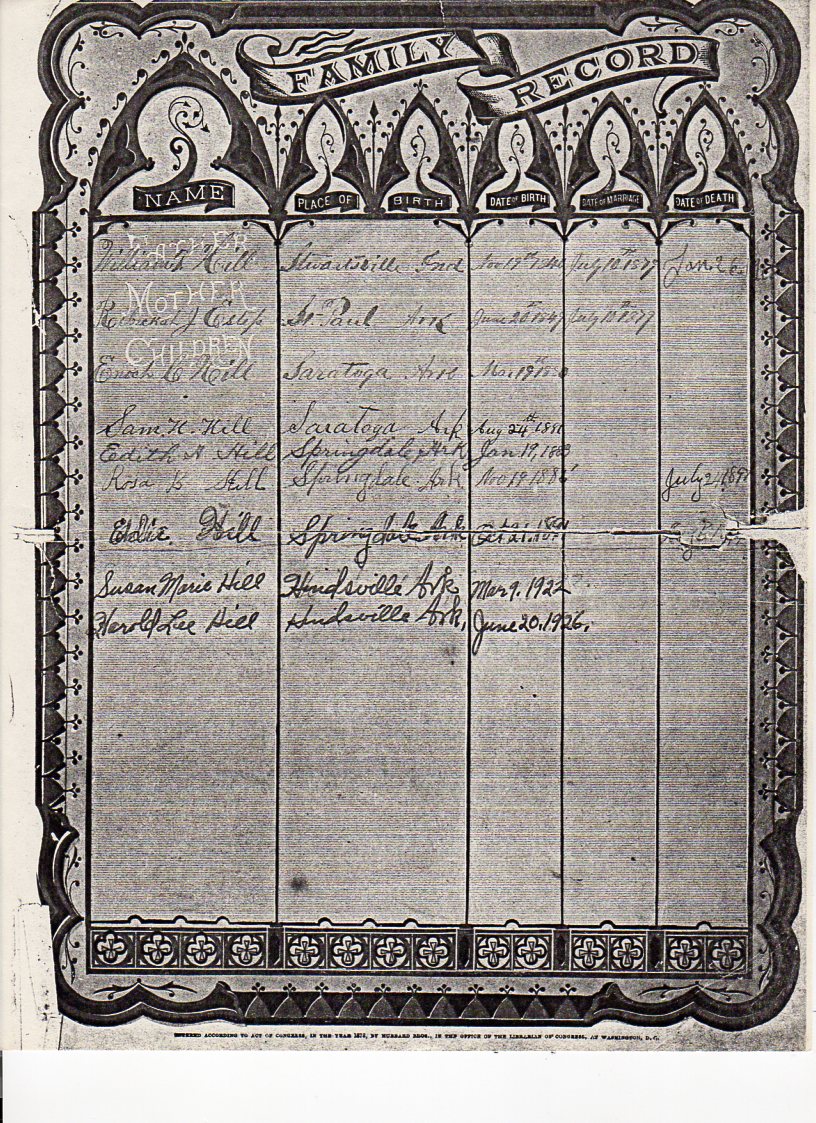 FAMILY RECORD
NAME PLACE OF BIRTH DATE OF BIRTH DATE OF MARRIAGE DATE OF DEATH
FATHER
William Hill Stewartsville Ind Nov 17th July 10th 1877 Jan. 26
MOTHER
Rebekah J Estep St. Paul Ark June 20th July 10th 1877
CHILDREN
Enoch Hill Saratoga Ark Mar. 19th
Sam. H. Hill Saratoga Ark Aug 24th
Edith A Hill Springdale Ark Jan. 19, 1883
Rosa B Hill Springdale Ark Nov 19 1886 July 2
Hill Oct 21.
Susan Marie Hill Hindsville Ark Mar 9. 1922
Harold Lee Hill Hindsville Ark, June 20, 1926.
ENTERED ACCORDING TO ACT OF CONGRESS, IN THE YEAR BY HUBBARD BROS., IN THE OFFICE OF THE LIBRARIAN OF CONGRESS, AT WASHINGTON, D. C.